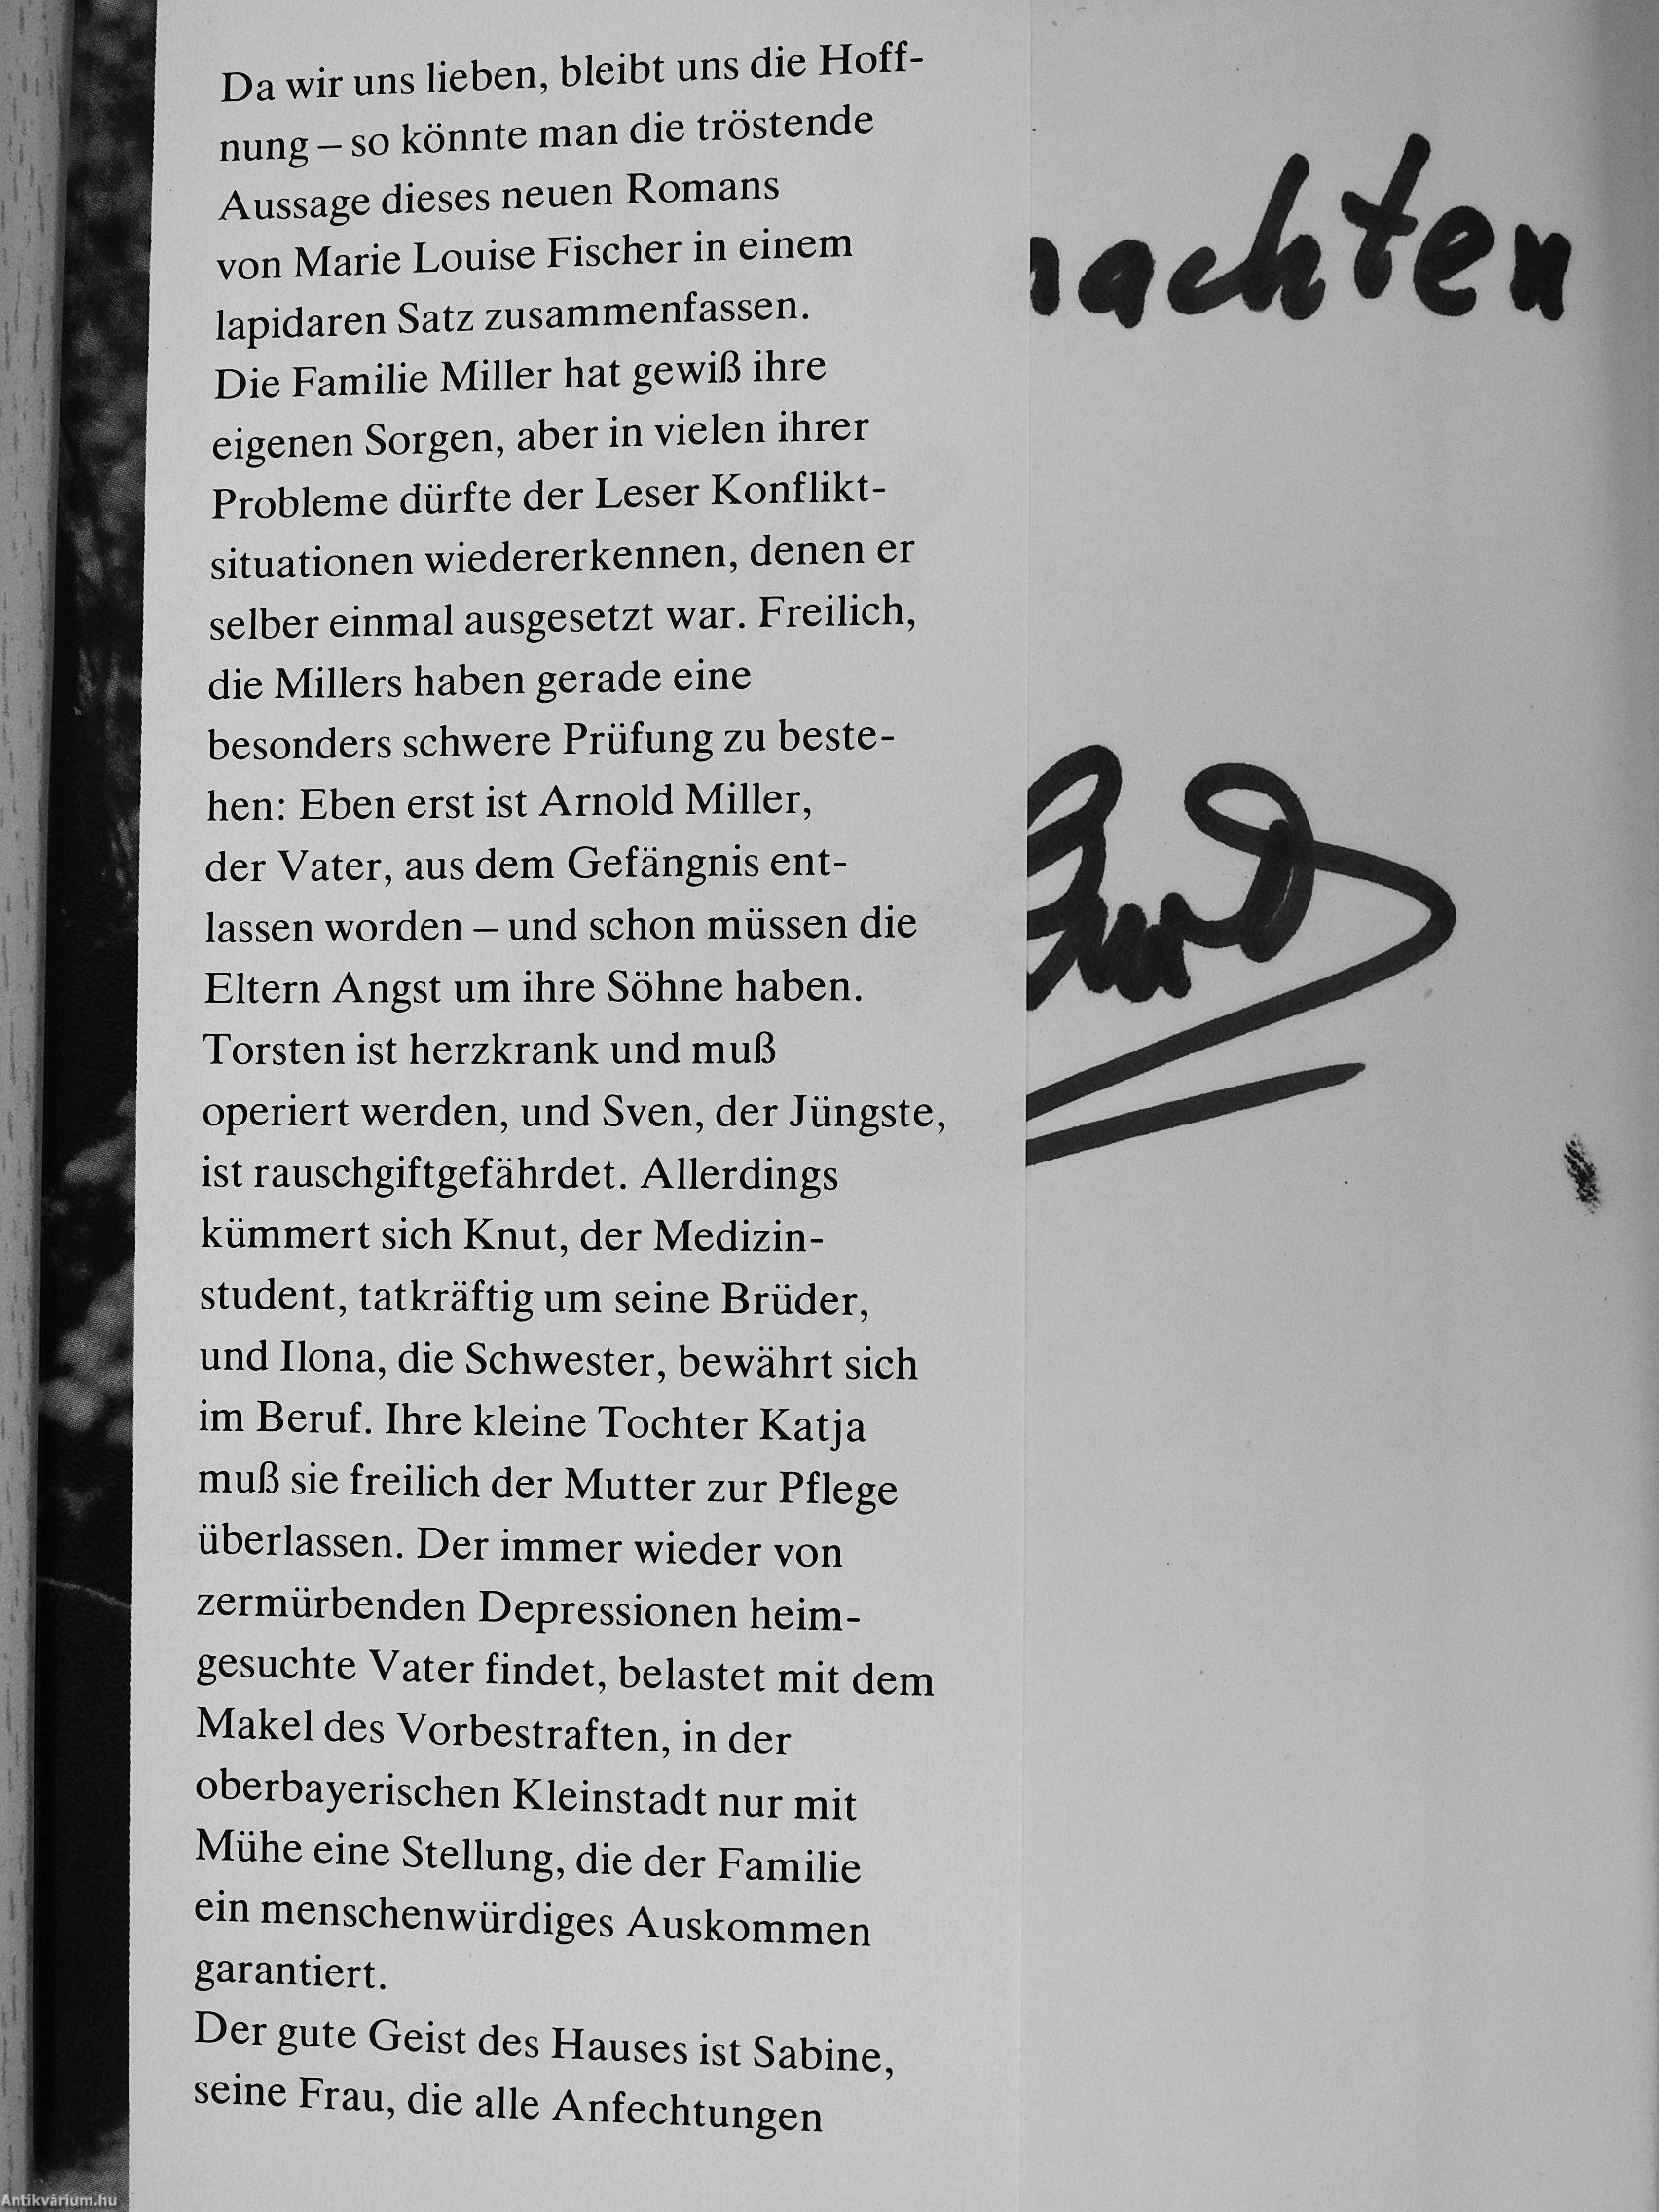 Da wir uns lieben, bleibt uns die Hoff-
nung – so könnte man die tröstende
Aussage dieses neuen Romans
von Marie Louise Fischer in einem
lapidaren Satz zusammenfassen.
Die Familie Miller hat gewiß ihre
eigenen Sorgen, aber in vielen ihrer
Probleme dürfte der Leser Konflikt-
situationen wiedererkennen, denen er
selber einmal ausgesetzt war. Freilich,
die Millers haben gerade eine
besonders schwere Prüfung zu beste-
hen: Eben erst ist Arnold Miller,
der Vater, aus dem Gefängnis ent-
lassen worden – und schon müssen die
Eltern Angst um ihre Söhne haben.
Torsten ist herzkrank und muß
operiert werden, und Sven, der Jüngste,
ist rauschgiftgefährdet. Allerdings
kümmert sich Knut, der Medizin-
student, tatkräftig um seine Brüder,
und Ilona, die Schwester, bewährt sich
im Beruf. Ihre kleine Tochter Katja
muß sie freilich der Mutter zur Pflege
überlassen. Der immer wieder von
zermürbenden Depressionen heim-
gesuchte Vater findet, belastet mit dem
Makel des Vorbestraften, in der
oberbayerischen Kleinstadt nur mit
Mühe eine Stellung, die der Familie
ein menschenwürdiges Auskommen
garantiert.
Der gute Geist des Hauses ist Sabine,
seine Frau, die alle Anfechtungen
nachten
Antikvárium.hu